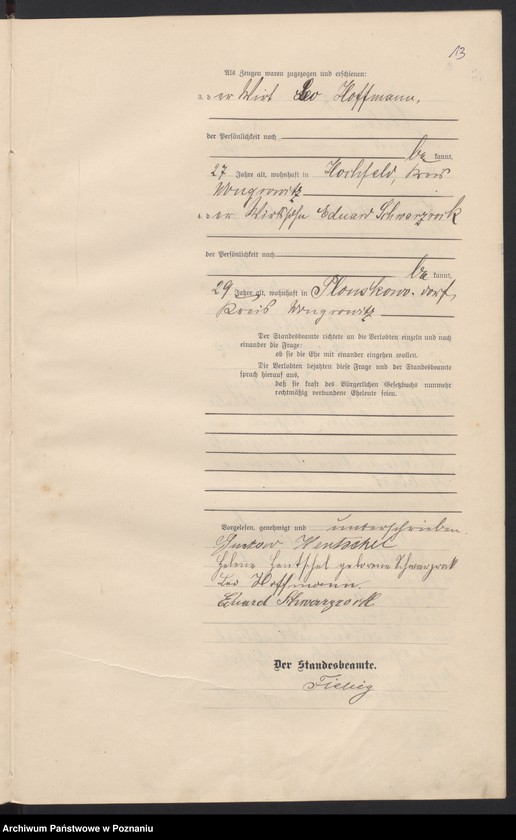 13
Als Zeugen waren zugezogen und erschienen:
3. der Wirt Leo Hoffmann,
der Persönlichkeit nach
be kannt,
27 Jahre alt, wohnhaft in Hochfeld, Kreis
Wongrowitz
4. der Wirtssohn Eduard Schwarzrock
der Persönlichkeit nach
be kannt,
29 Jahre alt, wohnhaft in Plonskowo-dorf,
Kreis Wongrowitz
Der Standesbeamte richtete an die Verlobten einzeln und nach
einander die Frage:
ob sie die Ehe mit einander eingehen wollen.
Die Verlobten bejahten diese Frage und der Standesbeamte
sprach hierauf aus,
daß sie kraft des Bürgerlichen Gesetzbuchs nunmehr
rechtmäßig verbundene Eheleute seien.
Vorgelesen, genehmigt und unterschrieben.
Gustav Hentschel
Helene Hentschel geborene Schwarzrock
Leo Hoffmann.
Eduard Schwarzrock
Der Standesbeamte.
Fiebig
Archiwum Państwowe w Poznaniu